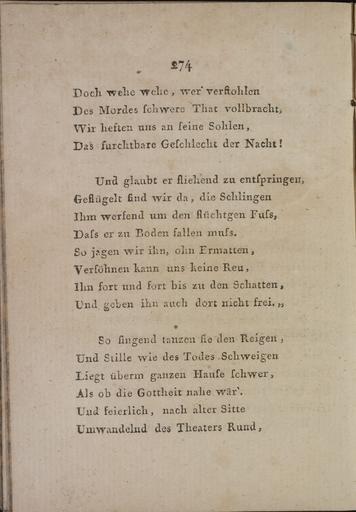 274
Doch wehe wehe, wer verſtohlen
Des Mordes ſchwere That vollbracht,
Wir heften uns an ſeine Sohlen,
Das furchtbare Geſchlecht der Nacht!
Und glaubt er fliehend zu entſpringen,
Geflügelt ſind wir da, die Schlingen
Ihm werfend um den flüchtgen Fuſs,
Daſs er zu Boden fallen muſs.
So jagen wir ihn, ohn Ermatten,
Verſöhnen kann uns keine Reu,
Ihn fort und fort bis zu den Schatten,
Und geben ihn auch dort nicht frei.„
So ſingend tanzen ſie den Reigen,
Und Stille wie des Todes Schweigen
Liegt überm ganzen Hauſe ſchwer,
Als ob die Gottheit nahe wär'.
Und feierlich, nach alter Sitte
Umwandelnd des Theaters Rund,